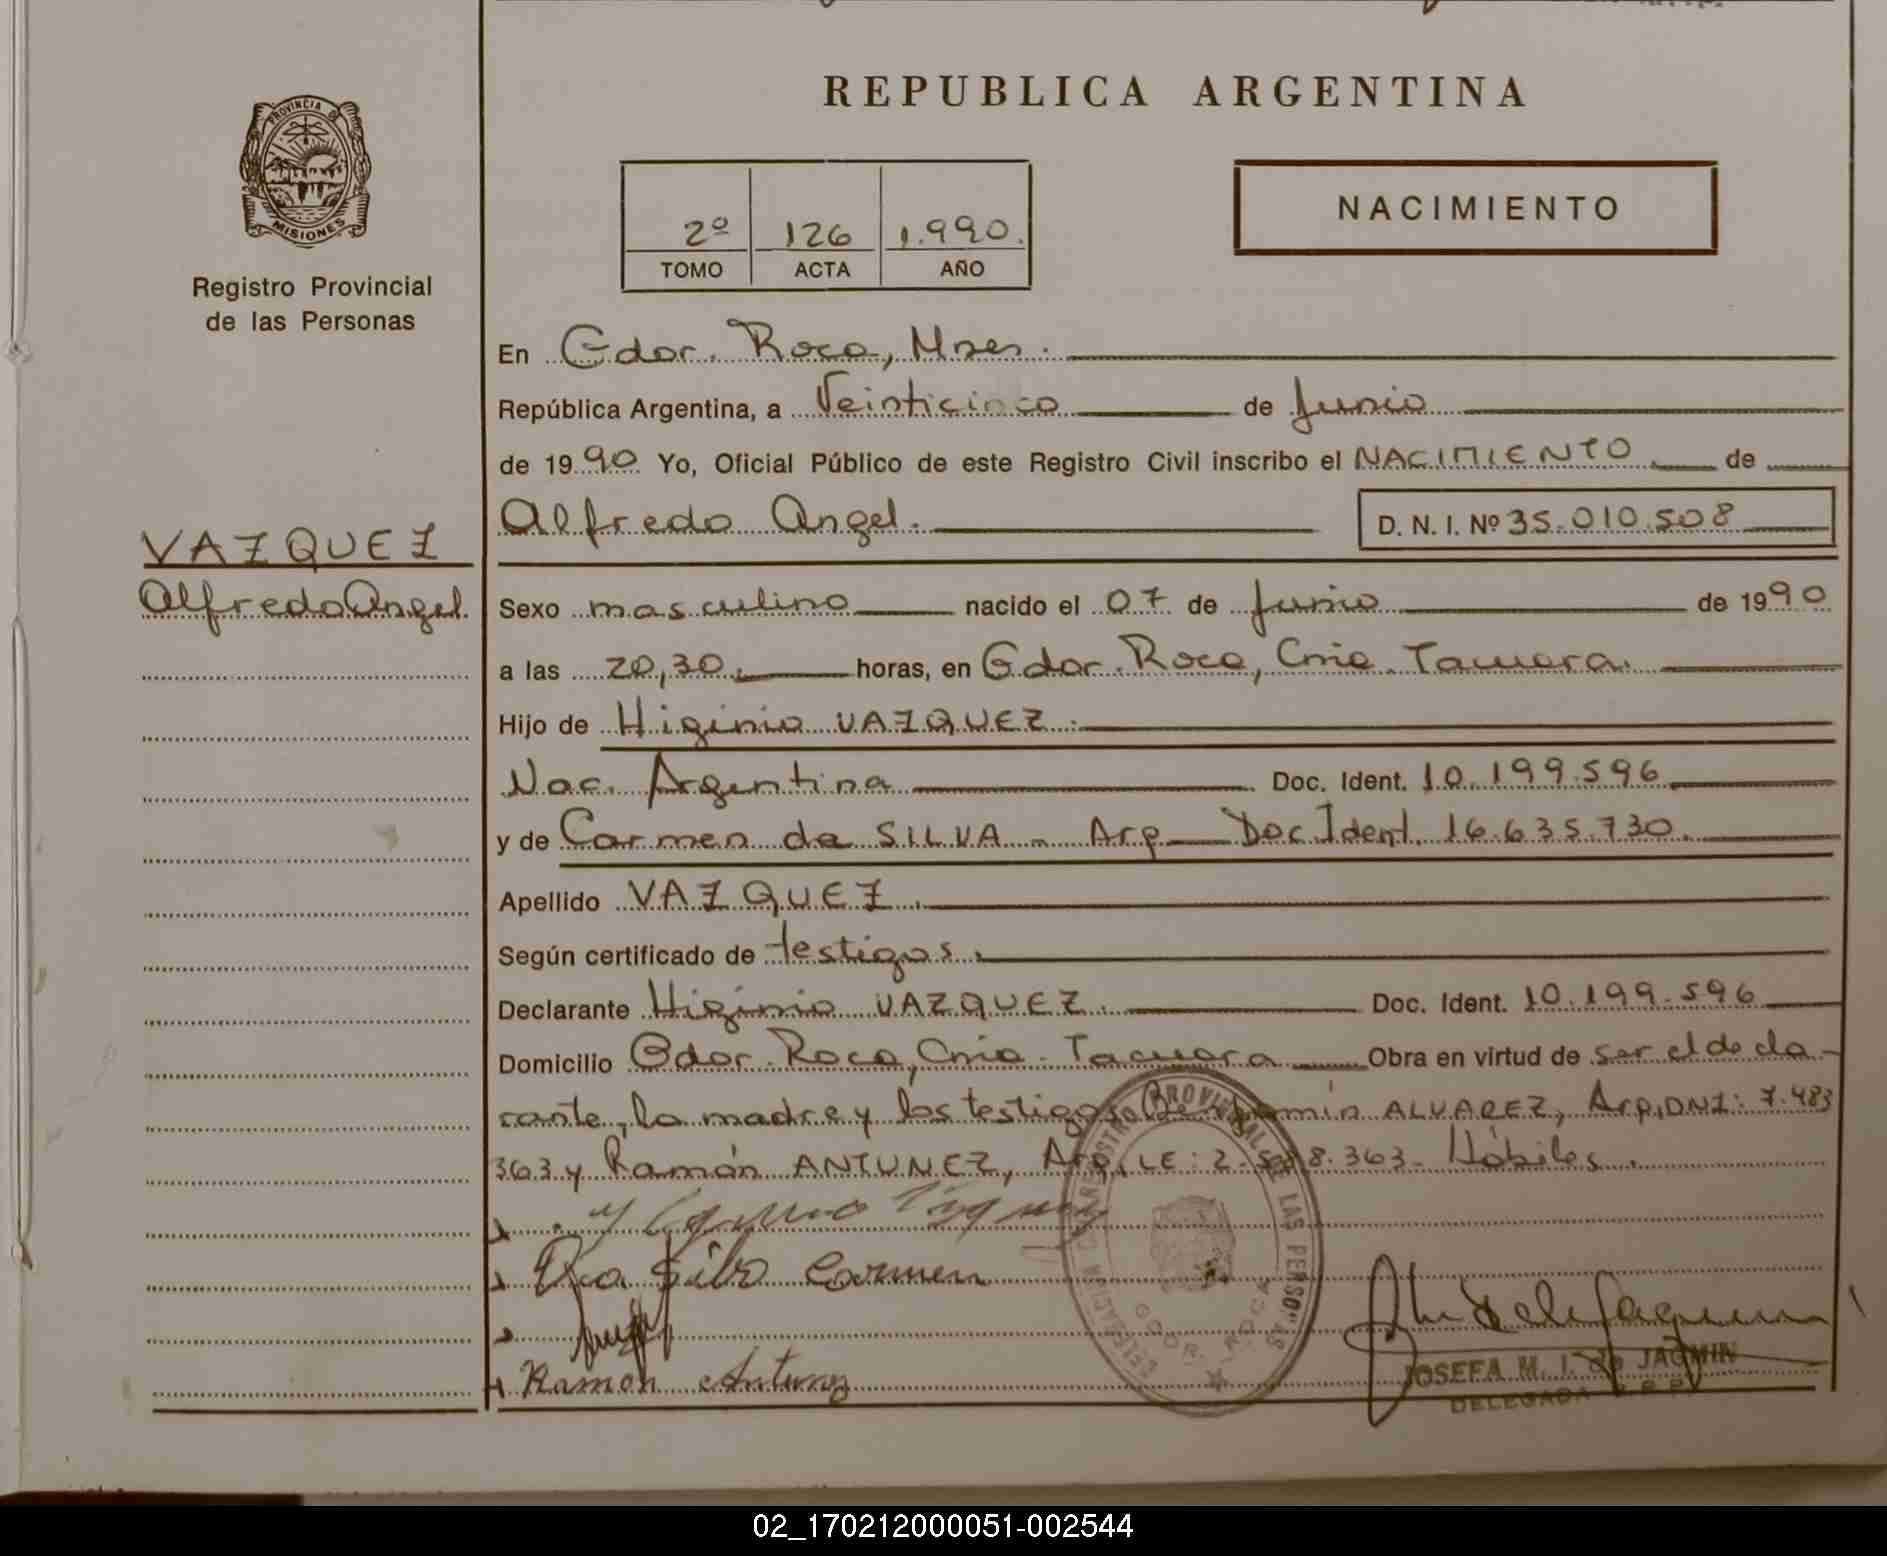 REPUBLICA ARGENTINA
PROVINCIA DE
MISIONES
Registro Provincial
de las Personas
2º 126 1.990.
TOMO ACTA AÑO
NACIMIENTO
En Gdor. Roca, Mnes.
República Argentina, a Veinticinco de Junio
de 1990 Yo, Oficial Público de este Registro Civil inscribo el NACIMIENTO de
Alfredo Angel. D. N. I. Nº 35.010.508
VAZQUEZ
Alfredo Angel.
Sexo masculino nacido el 07 de Junio de 1990
a las 20,30. horas, en Gdor. Roca, Cnia. Tacuara.
Hijo de Higinio VAZQUEZ.
Nac. Argentina Doc. Ident. 10.199.596
y de Carmen da SILVA - Arg. Doc. Ident. 16.635.730.
Apellido VAZQUEZ.
Según certificado de testigos.
Declarante Higinio VAZQUEZ. Doc. Ident. 10.199.596
Domicilio Gdor. Roca, Cnia. Tacuara Obra en virtud de ser el decla-
rante, la madre y los testigos: Benjamín ALVAREZ, Arg, DNI: 7.483
363 y Ramón ANTUNEZ, Arg, LE: 8.363. Hábiles.
Da Silva Carmen
Ramon Antunez
REGISTRO PROVINCIAL DE LAS PERSONAS
DELEGACION
GDOR. ROCA
JOSEFA M. I. de JAQMIN
DELEGADA R.P.P.
02_170212000051-002544